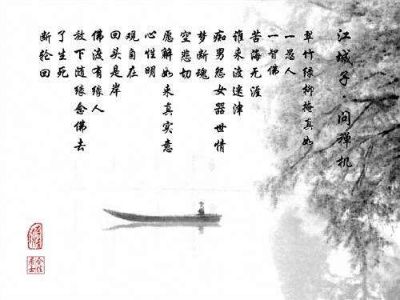 江城子 问禅机
翠竹绿柳掩真如
一愚人
一智佛
苦海无涯
谁来渡迷津
痴男怨女器世情
梦断魂
空悲切
愿解如来真实意
心性明
观自在
回头是岸
佛渡有缘人
放下随缘念佛去
了生死
断轮回